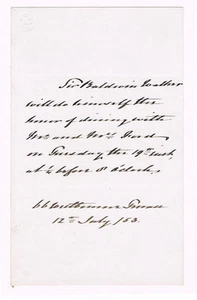 Sir Baldwin Walker
will do himself the
honor of dining with
Mr. and Mrs. Ford
on Tuesday the 19th inst,
at ¼ before 8 o'clock.
66 Westbourne Terrace
12th July / 53.